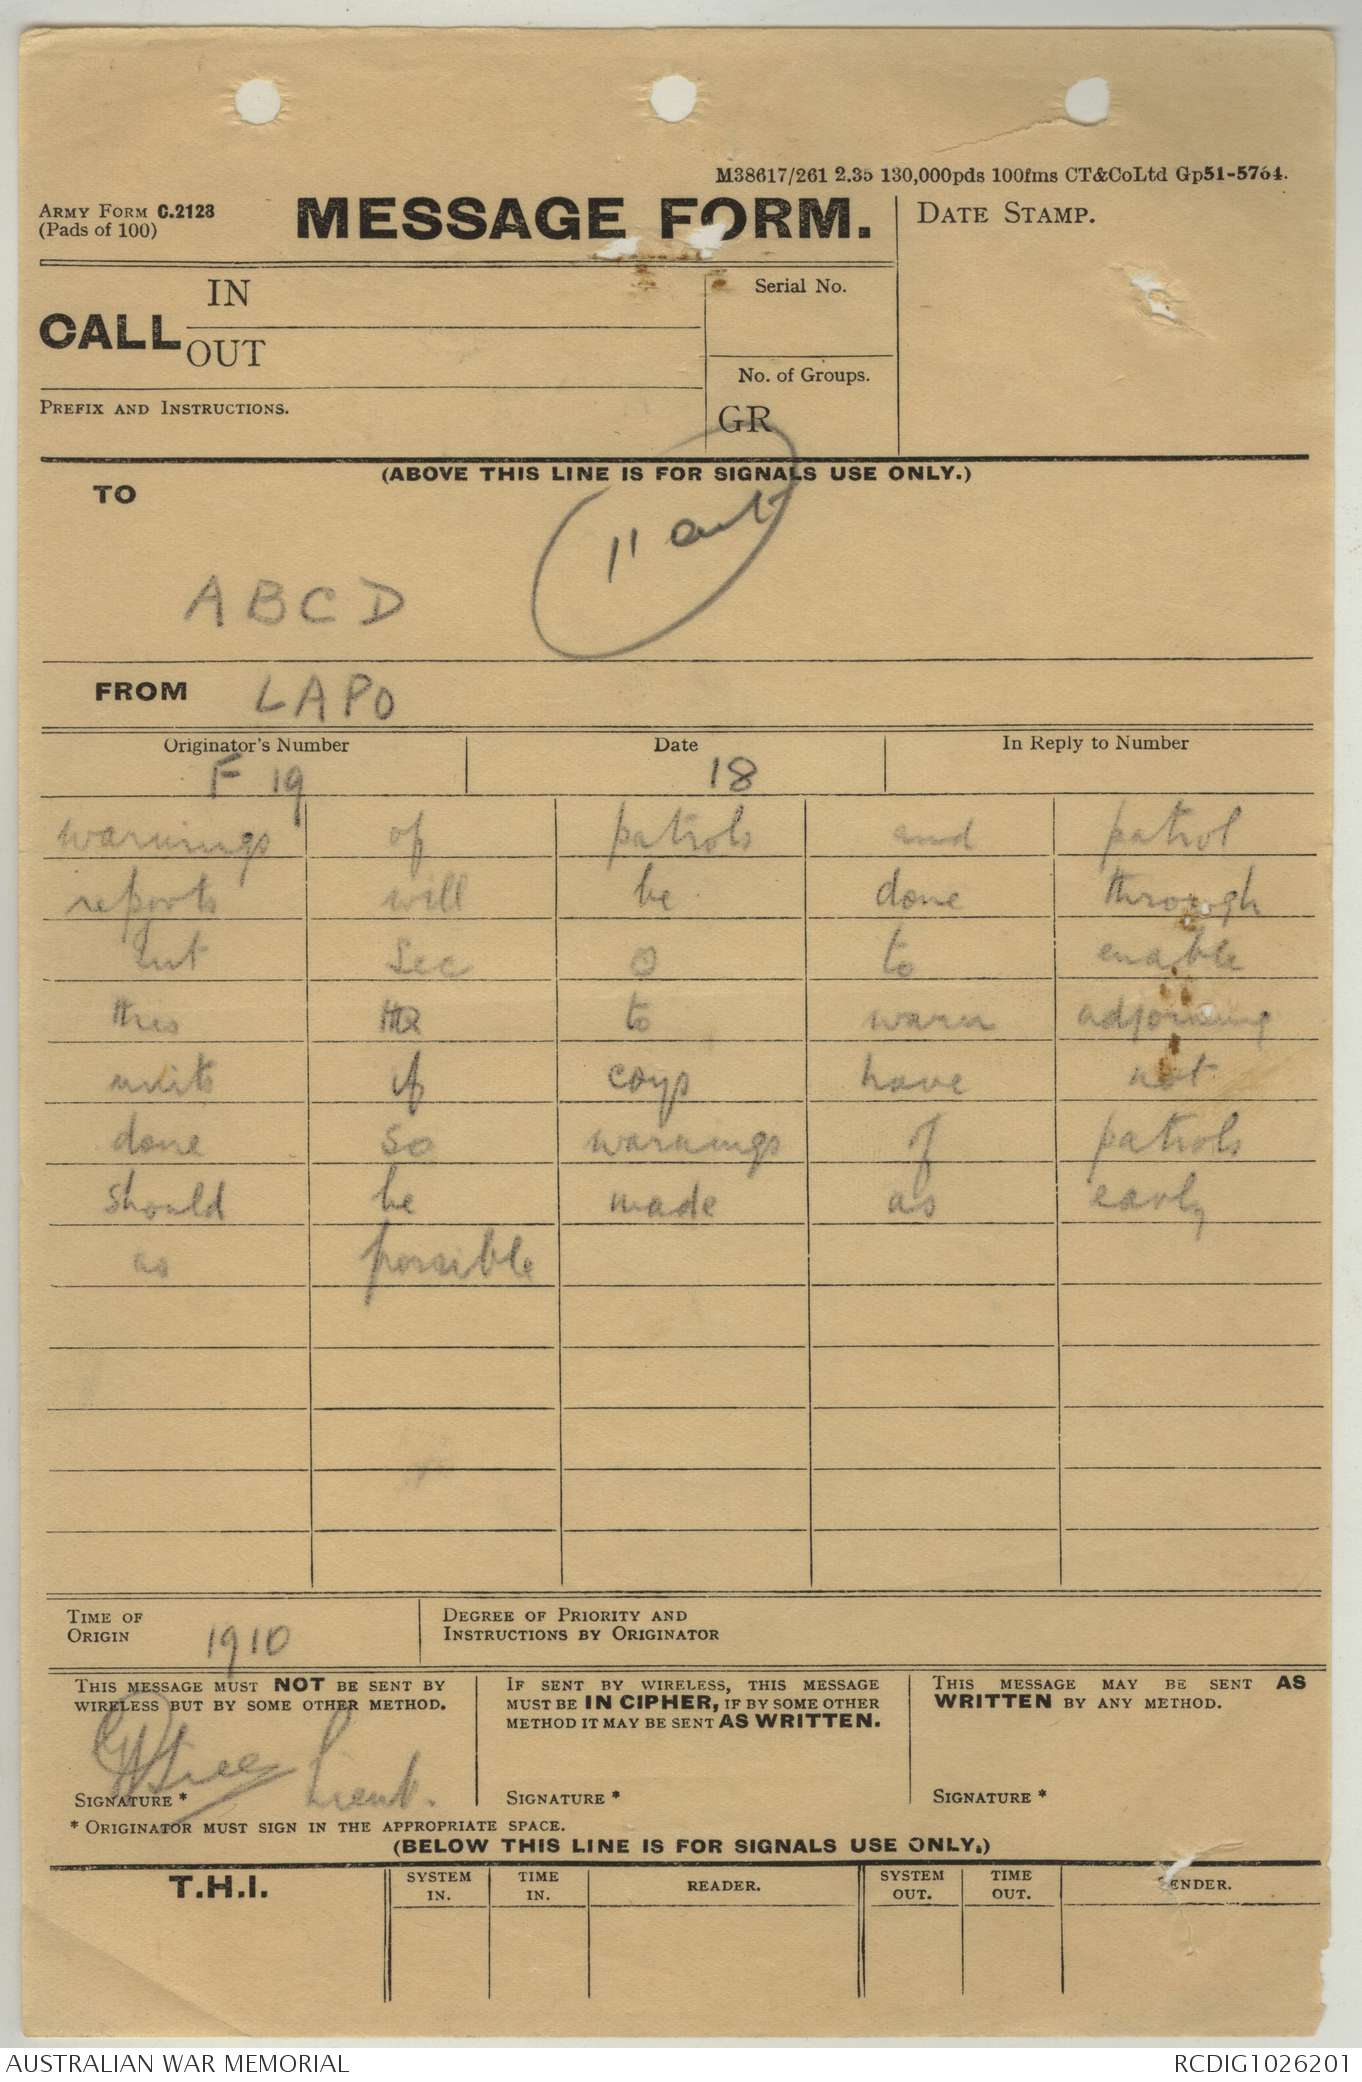 M38617/261 2.35 130,000pds 100fms CT&CoLtd Gp51-5764.
ARMY FORM C.2123
(Pads of 100)
MESSAGE FORM.
DATE STAMP.
CALL IN
OUT
Serial No.
No. of Groups.
GR
PREFIX AND INSTRUCTIONS.
(ABOVE THIS LINE IS FOR SIGNALS USE ONLY.)
TO
ABCD
FROM LAPO
Originator's Number Date In Reply to Number
F 19 18
warnings of patrols and patrol
reports will be done through
Int Sec O to enable
this HQ to warn adjoining
units if coys have not
done so warnings of patrols
should be made as early
as possible
TIME OF
ORIGIN 1910
DEGREE OF PRIORITY AND
INSTRUCTIONS BY ORIGINATOR
THIS MESSAGE MUST NOT BE SENT BY
WIRELESS BUT BY SOME OTHER METHOD.
Lieut.
SIGNATURE *
IF SENT BY WIRELESS, THIS MESSAGE
MUST BE IN CIPHER, IF BY SOME OTHER
METHOD IT MAY BE SENT AS WRITTEN.
SIGNATURE *
THIS MESSAGE MAY BE SENT AS
WRITTEN BY ANY METHOD.
SIGNATURE *
* ORIGINATOR MUST SIGN IN THE APPROPRIATE SPACE.
(BELOW THIS LINE IS FOR SIGNALS USE ONLY.)
T.H.I.
SYSTEM
IN.
TIME
IN.
READER.
SYSTEM
OUT.
TIME
OUT.
SENDER.
AUSTRALIAN WAR MEMORIAL RCDIG1026201